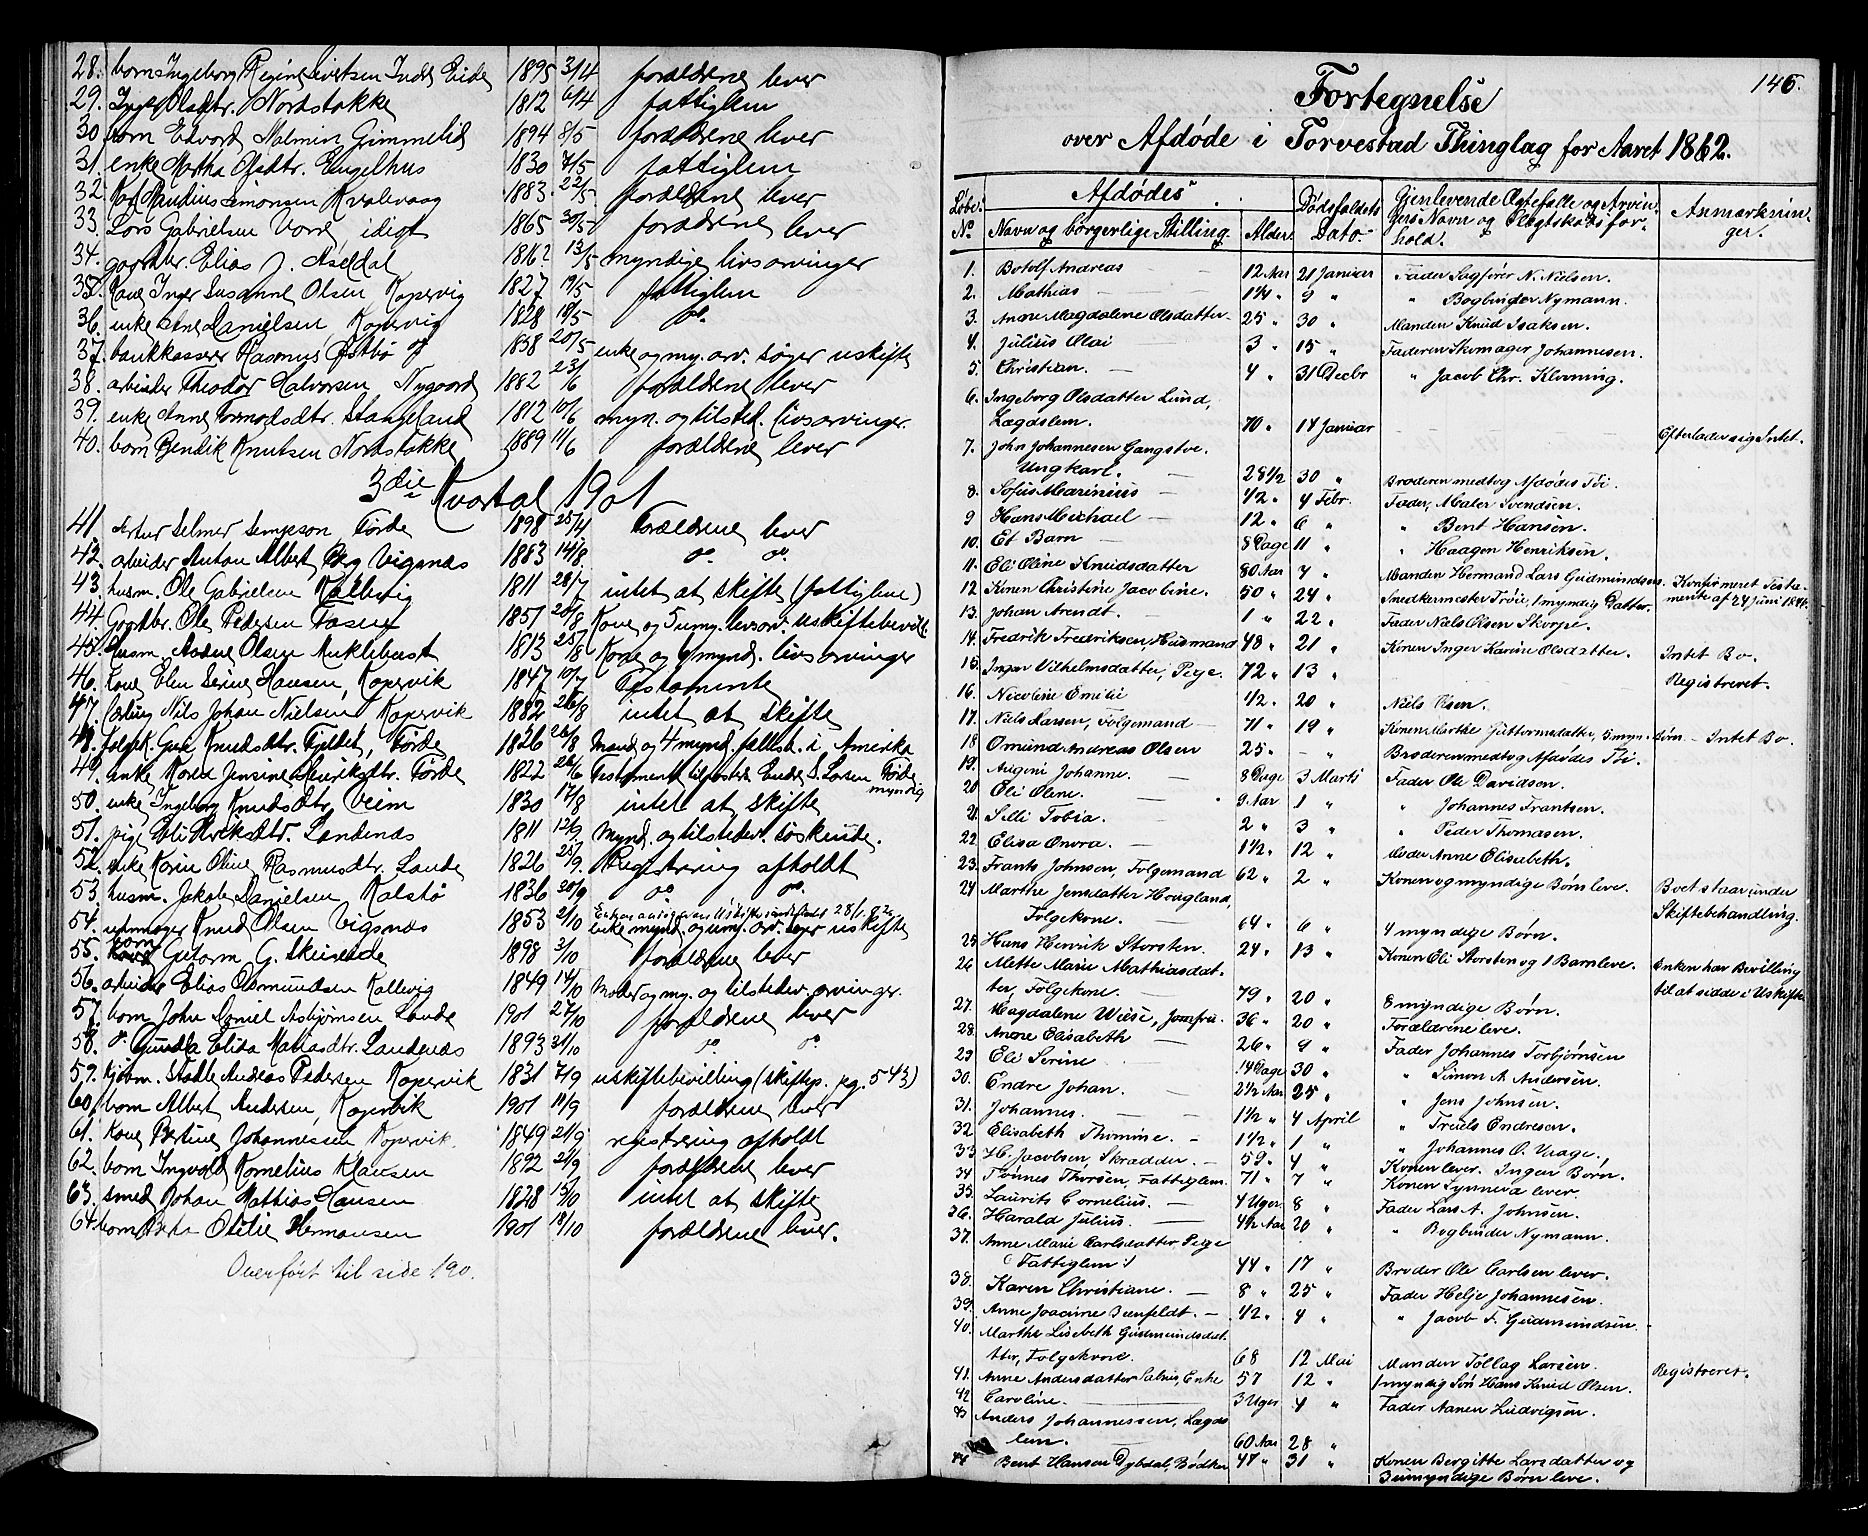 28. barn Ingeborg Regine Sivertsen Indr. Eide 1895 3/4 forældrene lever
29. Inger Olsdtr. Nordstokke 1812 6/4 fattiglem
30 barn Edvard Nalmin Gimmelid 1894 8/5 forældrene lever
31. enke Martha Olsdtr. Engelhus 1830 7/5 fattiglem
32. Mauritius Simonsen Kvalevaag 1883 22/5 forældrene lever
33. Lars Gabrielsen Vorre idiot 1865 30/5 forældrene lever
34. gaardbr. Elias J. Aseldal 13/5 myndige livsarvinger
35. Kone Inger Susanne Olsen Kopervig 1827 19/5 fattiglem
36. enke Ane Danielsen Kopervig 1828 18/5 do.
37. bankkasserer Rasmus Østbø 1838 20/5 enke og my. arv. søger uskifte
38. arbeider Theodor Halvorsen Nygaard 1882 23/6 forældrene lever
39. enke Anne Tormodsdtr. Stangeland 1812 10/6 myn. og tilsted. livsarvinger.
40. barn Bendik Knutsen Nordstokke 1889 11/6 forældrene lever
3die Kvartal 1901
41. Artur Selmer Simpson Førde 1898 25/4 Forældrene lever
42. arbeider Anton Albert Berg Vigsnæs 1883 14/8. do do.
43. husm. Ole Gabrielsen Kallevig 1811 28/7 intet at skifte (fattiglem)
44. Gaardbr. Ole Pedersen Fosen 1851 20/8 Kone og 5 umy. livsarv. uskiftebevill.
45. Husm. Aadne Olsen Mukleburst 1813 25/8 Kone og 6 mynd. livsarvinger
46. Kone Elen Serine Hansen, Kopervik 1847 10/7 Testamente
47. Yngling Nils Johan Nielsen Kopervik 1882 26/8 intet at skifte
48. folgek. Guri Knudsdtr. Fjeldet, Førde 1826 26/8 Mand og 4 mynd. fællesb. i Amerika
49. enke Karen Jensine Henriksdtr. Førde 1822 26/6 Testament tilgodeset Endre S. Larsen Førde myndig
50. enke Ingeborg Knudsdtr. Veim 1830 17/8 intet at skifte
51. pige Eli Eriksdtr. Landenæs 1811 12/9 Mynd. og tilstedev. søskende.
52. enke Karen Oline Rasmusdtr. Lande 1826 25/9. Registrering afholdt
53. husm. Jakob Danielsen Kalstø 1836 30/9 do do.
54. urmager Knud Olsen Vigsnæs 1853 2/10 enke mynd. og umy. arv. søger uskifte
55. barn Gutorm G. Skeiseide 1898 3/10 forældrene lever
56. arbeider Elias Osmundsen Kallevig 1849 14/10 Moder og my. og tilstedev. arvinger.
57. barn John Daniel Asbjørnsen Lande 1901 27/10 forældrene lever
58. do. Gunda Elida Matiasdtr. Landenæs 1893 31/10 do do.
59. kjøbm. Ståle Andreas Pedersen Kopervik 1831 7/9 uskiftebevilling (skiftep. pg. 543)
60. barn Albert Andersen, Kopervik 1901 11/9 forældrene lever
61. Kone Bertine Johannesen Kopervik. 1849 21/9 registrering afholdt
62. barn Ingvald Kornelius Klausen 1892 21/9 forældrene lever
63. smed Johan Mathias Hansen 1828 15/10 intet at skifte
64. barn Otilie Hermansen 1901 18/10 forældrene lever.
Overført til side 190.
146.
Fortegnelse
over Afdøde i Torvestad Thinglag for Aaret 1862.
Løbe No. Afdødes Navn og borgerlige Stilling. Alder. Dødsfaldets Dato. Gjenlevende Ægtefælle og Arvingers Navn og Slegtskabsforhold. Anmærkninger.
1. Botolf Andreas 12 Aar 21 Januar Fader Sagfører N. Nielsen.
2. Mathias 1¼ " 9 " " Bogbinder Nymann.
3. Anne Magdalene Olsdatter 25 " 30 " Manden Knud Isaksen.
4. Julius Olai 3 " 15 " Faderen Skomager Johannesen.
5. Christian. 4 " 31 Decbr " Jacob Chr. Kloving.
6. Ingeborg Olsdatter Lund,
Lægdslem. 70 " 14 Januar Efterlader sig Intet.
7. John Johannesen Gangstoe.
Ungkarl. 28½ 30 " Broderen medtog Afdødes Tøi.
8. Sofus Marinius ½ " 4 Febr. Fader, Maler Svendsen.
9 Hans Michael 12 " 6 " " Bent Hansen.
10. Et Barn 8 Dage 11 " " Haagen Henriksen.
11. Eli Oline Knudsdatter 80 Aar 4 " Manden Hermand Lars Gudmundsen. Konfirmeret Testamente af 24 Juni 1846.
12 Konen Christine Jacobine. 50 " 24 " Smedkermester Trøie, 1 myndig Datter.
13. Johan Arendt. 1 " 22 " Fader Niels Olsen Skorpe.
14. Fredrik Fredriksen, Husmand 48 " 21 " Konen Inger Karine Olsdatter. Intet Bo.
15. Inger Vilhelmsdatter, Pige. 72 " 13 " Registreret.
16. Nicoline Emilie ½ " 20 " Niels Olsen.
17. Niels Larsen, Folgemand 71 " 19 " Konen Marthe Guttormsdatter, 5 myn. Børn - Intet Bo.
18 Omund Andreas Olsen 25 " - " Broderen medtog Afdødes Tøi.
19. Augeni Johanne. 8 Dage 3 Marti Fader Ole Davidsen.
20 Eli Olene. 9 Aar 1 " " Johannes Frantsen.
21. Silli Tobia. 2 " 3 " " Peder Thomasen.
22 Elisa Onora. 1½ " 12 " Moder Anne Elisabeth.
23. Frants Johnsen, Folgemand 62 " 2 " Konen og myndige Børn leve. Boet staar under Skiftebehandling.
24. Marthe Jensdatter Hougland,
Folgekone. 64 " 6 " 4 myndige Børn.
25 Hans Henrik Storsten. 24 " 13 " Konen Eli Storsten og 1 Barn leve. Enken har Bevilling til at sidde i Uskifte
26 Mette Marie Mathiasdatter, Folgekone. 79 " 20 " 8 myndige Børn.
27. Magdalene Wiese, Jomfru. 36 " 20 " Forældrene leve.
28. Anne Elisabeth 26 " 9 " Fader Johannes Torbjørnsen
29 Eli Serine 14 Dage 30 " " Simon A. Andersen.
30. Endre Johan. 2½ Aar 25 " " Jens Johnsen.
31. Johannes. 1½ " 4 April " Truels Endresen.
32 Elisabeth Thomine. 1½ " 1 " " Johannes O. Vaage.
33 H. Jacobsen Skrædder. 59 " 4 " Konen lever. Ingen Børn.
34 Tønnes Thorsen, Fattiglem. 71 " 7 " Konen Synneva lever.
35. Laurits Cornelius. 4 Uger 8 " Fader Lars A. Johnsen.
36. Harald Julius. 4½ Aar 20 " " Bogbinder Nymann.
37. Anne Marie Carlsdatter Pige
(Fattiglem:) 44 " 17 " Broder Ole Carlsen lever.
38. Karen Christiane. 8 " 25 " Fader Helje Johannesen.
39. Anne Joacime Ivenfeldt. ½ " 4 " " Jacob F. Gudmundsen.
40. Marthe Lisebeth Gudmundsdatter, Folgekone. 68 12 Mai Manden Tollag Larsen. Registreret.
41. Anne Andersdatter Salnis, Enke 57 12 " 1 myndig Søn Hans Knud Olsen.
42 Caroline. 3 Uger 4 " Fader Aanen Ludvigsen.
43 Anders Johannessen, Lægdslem. 60 Aar 28 "
44 Bent Hansen Dybdal, Bødker 47 " 31 " Konen Bergitte Larsdatter og
3 umyndige Børn leve.